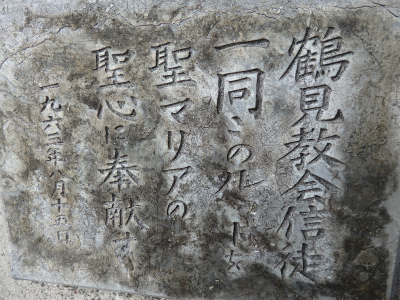 鶴見教会信徒
一同このルルドを
聖マリアの
聖心に奉献す
一九六三年八月十五日